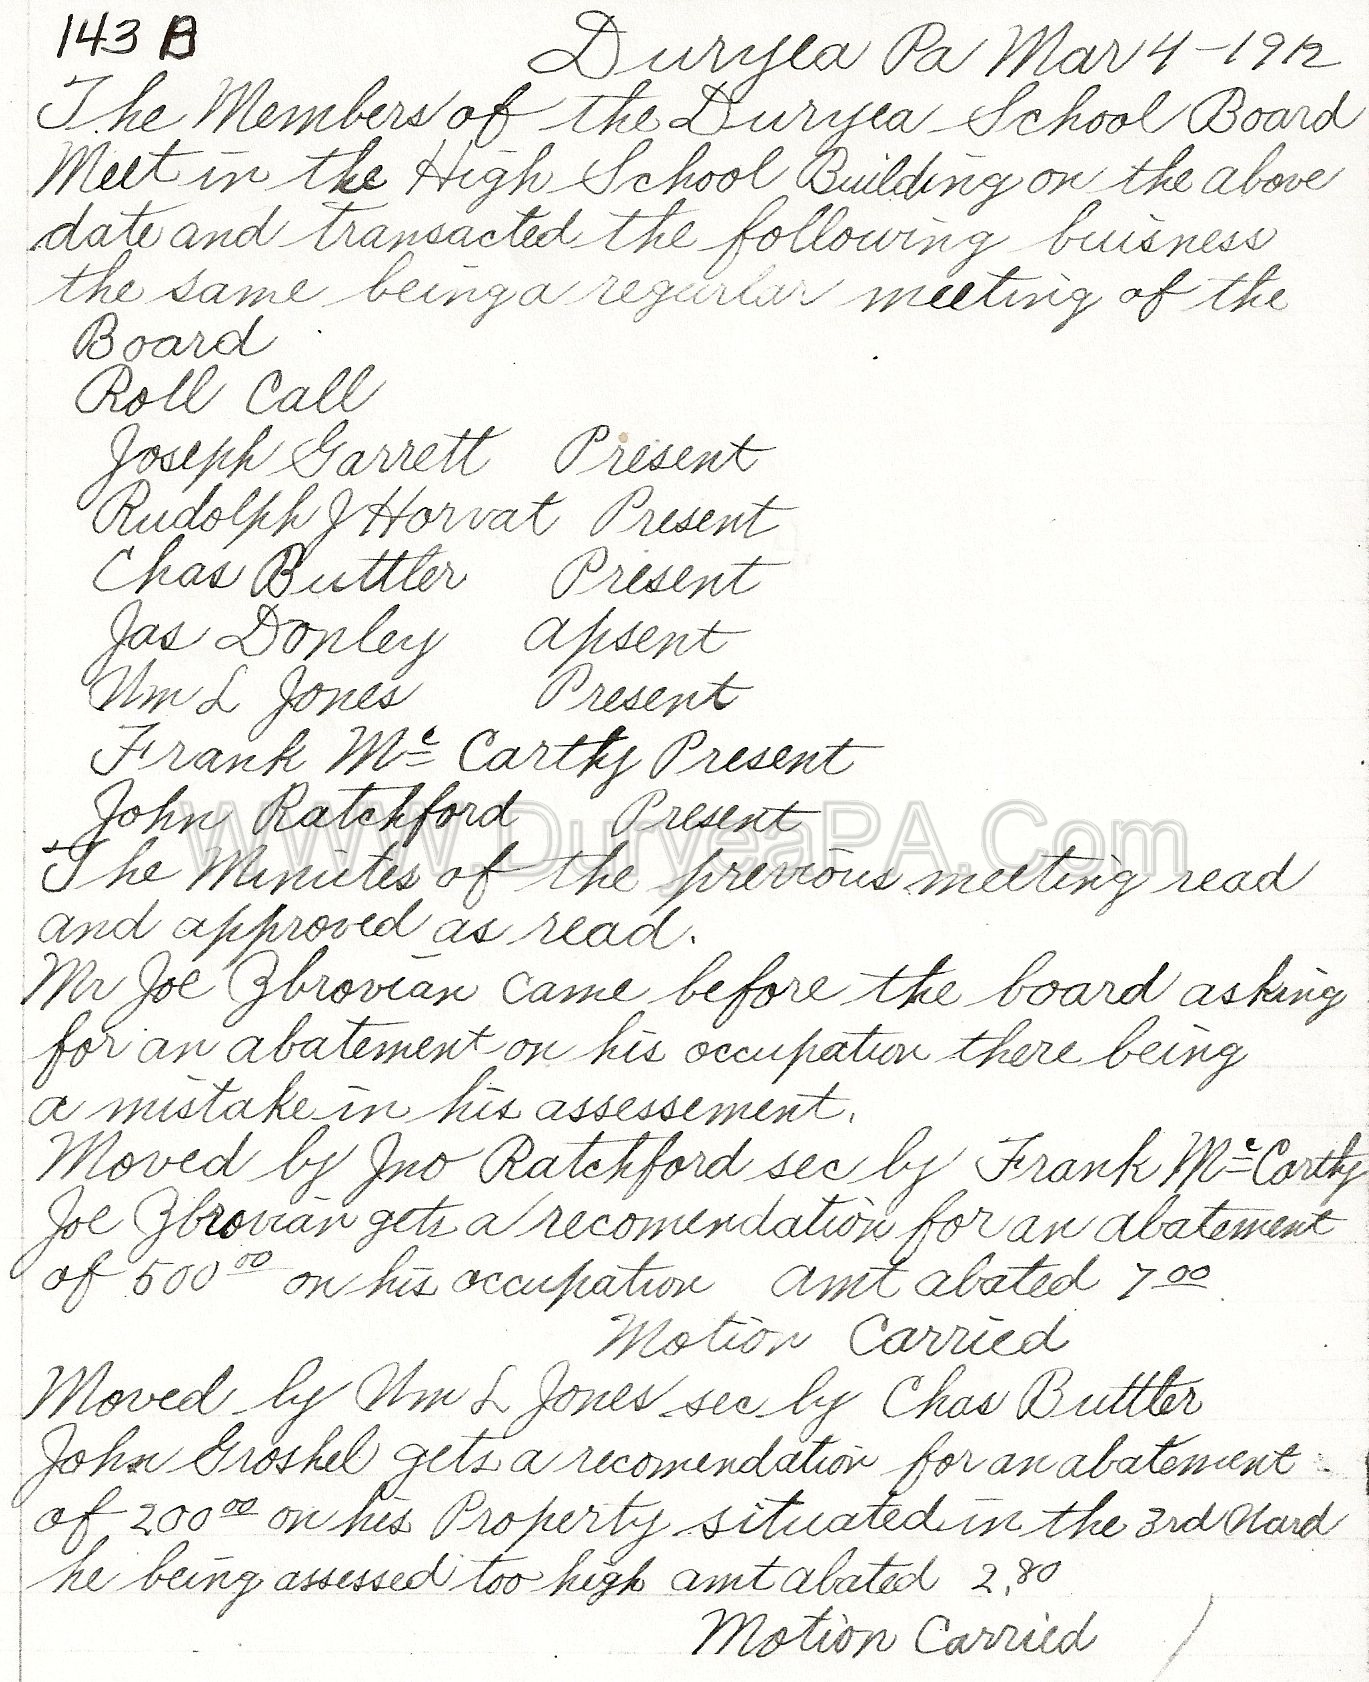 143 B
Duryea Pa Mar 4-1912
The Members of the Duryea School Board
Meet in the High School Building on the above
date and transacted the following buisness
the same being a regurlar meeting of the
Board
Roll Call
Joseph Garrett Present
Rudolph J Horvat Present
Chas Buttler Present
Jas Donley apsent
Wm L Jones Present
Frank Mc Carthy Present
John Ratchford Present
WWW.DuryeaPA.Com
The Minutes of the previous meeting read
and approved as read.
Mr Joe Zbrovian came before the board asking
for an abatement on his occupation there being
a mistake in his assessement.
Moved by Jno Ratchford sec by Frank Mc Carthy
Joe Zbrovian gets a recomendation for an abatement
of 500 00 on his occupation amt abated 7 00
Motion Carried
Moved by Wm L Jones sec by Chas Buttler
John Groshel gets a recomendation for an abatement
of 200 00 on his Property situated in the 3rd Ward
he being assessed too high amt abated 2.80
Motion Carried